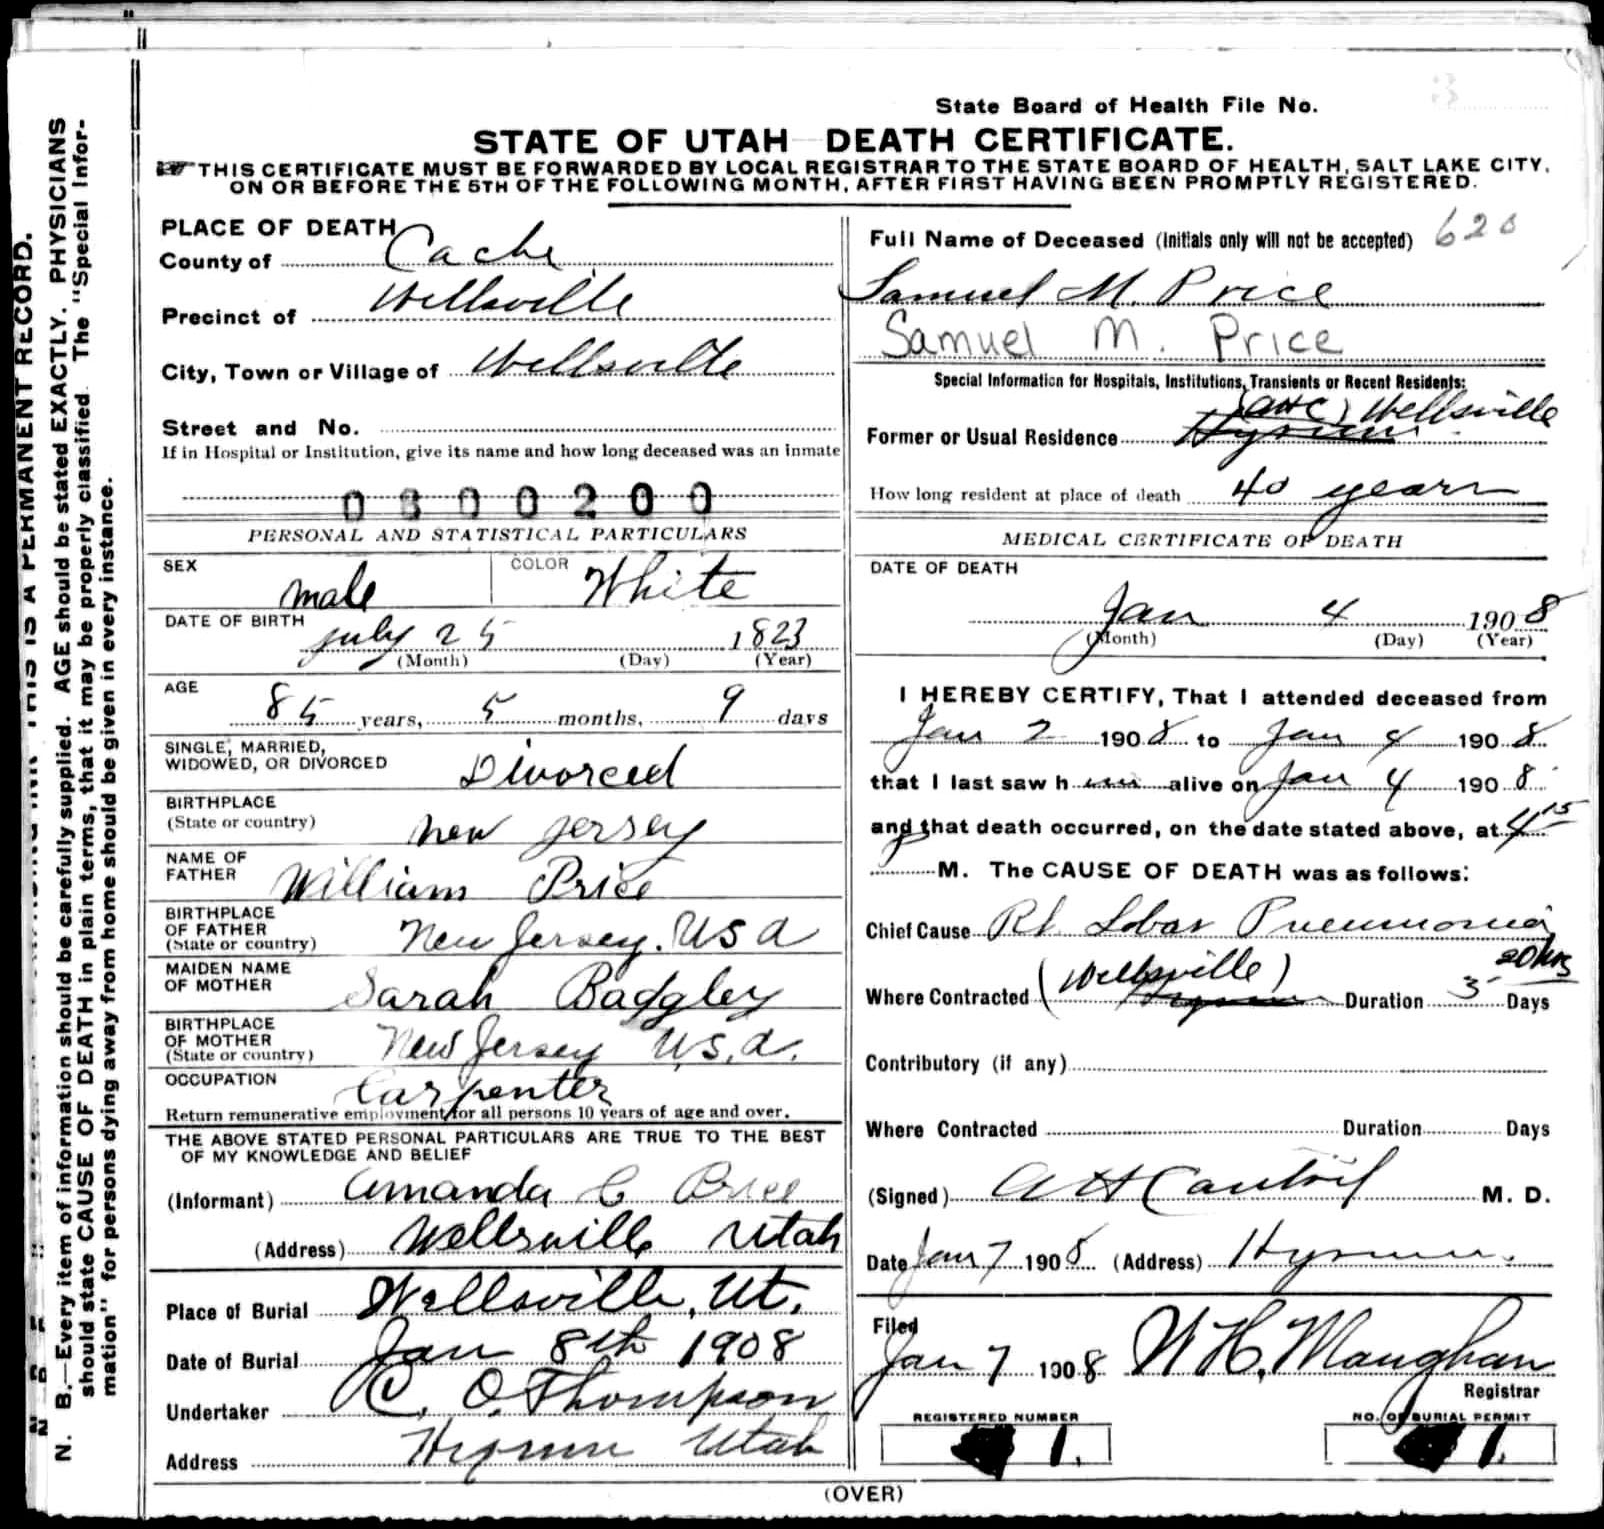 State Board of Health File No.
STATE OF UTAH DEATH CERTIFICATE.
THIS CERTIFICATE MUST BE FORWARDED BY LOCAL REGISTRAR TO THE STATE BOARD OF HEALTH, SALT LAKE CITY,
ON OR BEFORE THE 5TH OF THE FOLLOWING MONTH, AFTER FIRST HAVING BEEN PROMPTLY REGISTERED.
N. B.—Every item of information should be carefully supplied. AGE should be stated EXACTLY. PHYSICIANS
should state CAUSE OF DEATH in plain terms, that it may be properly classified. The "Special Infor-
mation" for persons dying away from home should be given in every instance.
THIS IS A PERMANENT RECORD.
PLACE OF DEATH
County of Cache
Precinct of Wellsville
City, Town or Village of Wellsville
Street and No.
If in Hospital or Institution, give its name and how long deceased was an inmate
0800200
PERSONAL AND STATISTICAL PARTICULARS
SEX male COLOR White
DATE OF BIRTH July 25 1823
(Month) (Day) (Year)
AGE 85 years, 5 months, 9 days
SINGLE, MARRIED,
WIDOWED, OR DIVORCED Divorced
BIRTHPLACE
(State or country) New Jersey
NAME OF
FATHER William Price
BIRTHPLACE
OF FATHER
(State or country) New Jersey. USA
MAIDEN NAME
OF MOTHER Sarah Badgley
BIRTHPLACE
OF MOTHER
(State or country) New Jersey U.S.A.
OCCUPATION Carpenter
Return remunerative employment for all persons 10 years of age and over.
THE ABOVE STATED PERSONAL PARTICULARS ARE TRUE TO THE BEST
OF MY KNOWLEDGE AND BELIEF
(Informant) Amanda C Price
(Address) Wellsville Utah
Place of Burial Wellsville, Ut.
Date of Burial Jan 8th 1908
Undertaker C. O. Thompson
Address Hyrum Utah
Full Name of Deceased (Initials only will not be accepted) 620
Samuel M. Price
Samuel M. Price
Special Information for Hospitals, Institutions, Transients or Recent Residents:
(AHC) Wellsville
Former or Usual Residence Hyrum
How long resident at place of death 40 years
MEDICAL CERTIFICATE OF DEATH
DATE OF DEATH
Jan 4 1908
(Month) (Day) (Year)
I HEREBY CERTIFY, That I attended deceased from
Jan 2 1908 to Jan 4 1908
that I last saw him alive on Jan 4 1908
and that death occurred, on the date stated above, at 4 15
M. The CAUSE OF DEATH was as follows:
Chief Cause Rt. Lobar Pneumonia
Where Contracted (Wellsville) Hyrum Duration 3 Days 20 hrs
Contributory (if any)
Where Contracted Duration Days
(Signed) A H Cantril M. D.
Date Jan 7 1908 (Address) Hyrum.
Filed
Jan 7 1908 W H. Maughan
Registrar
REGISTERED NUMBER NO. OF BURIAL PERMIT
1. 1.
(OVER)